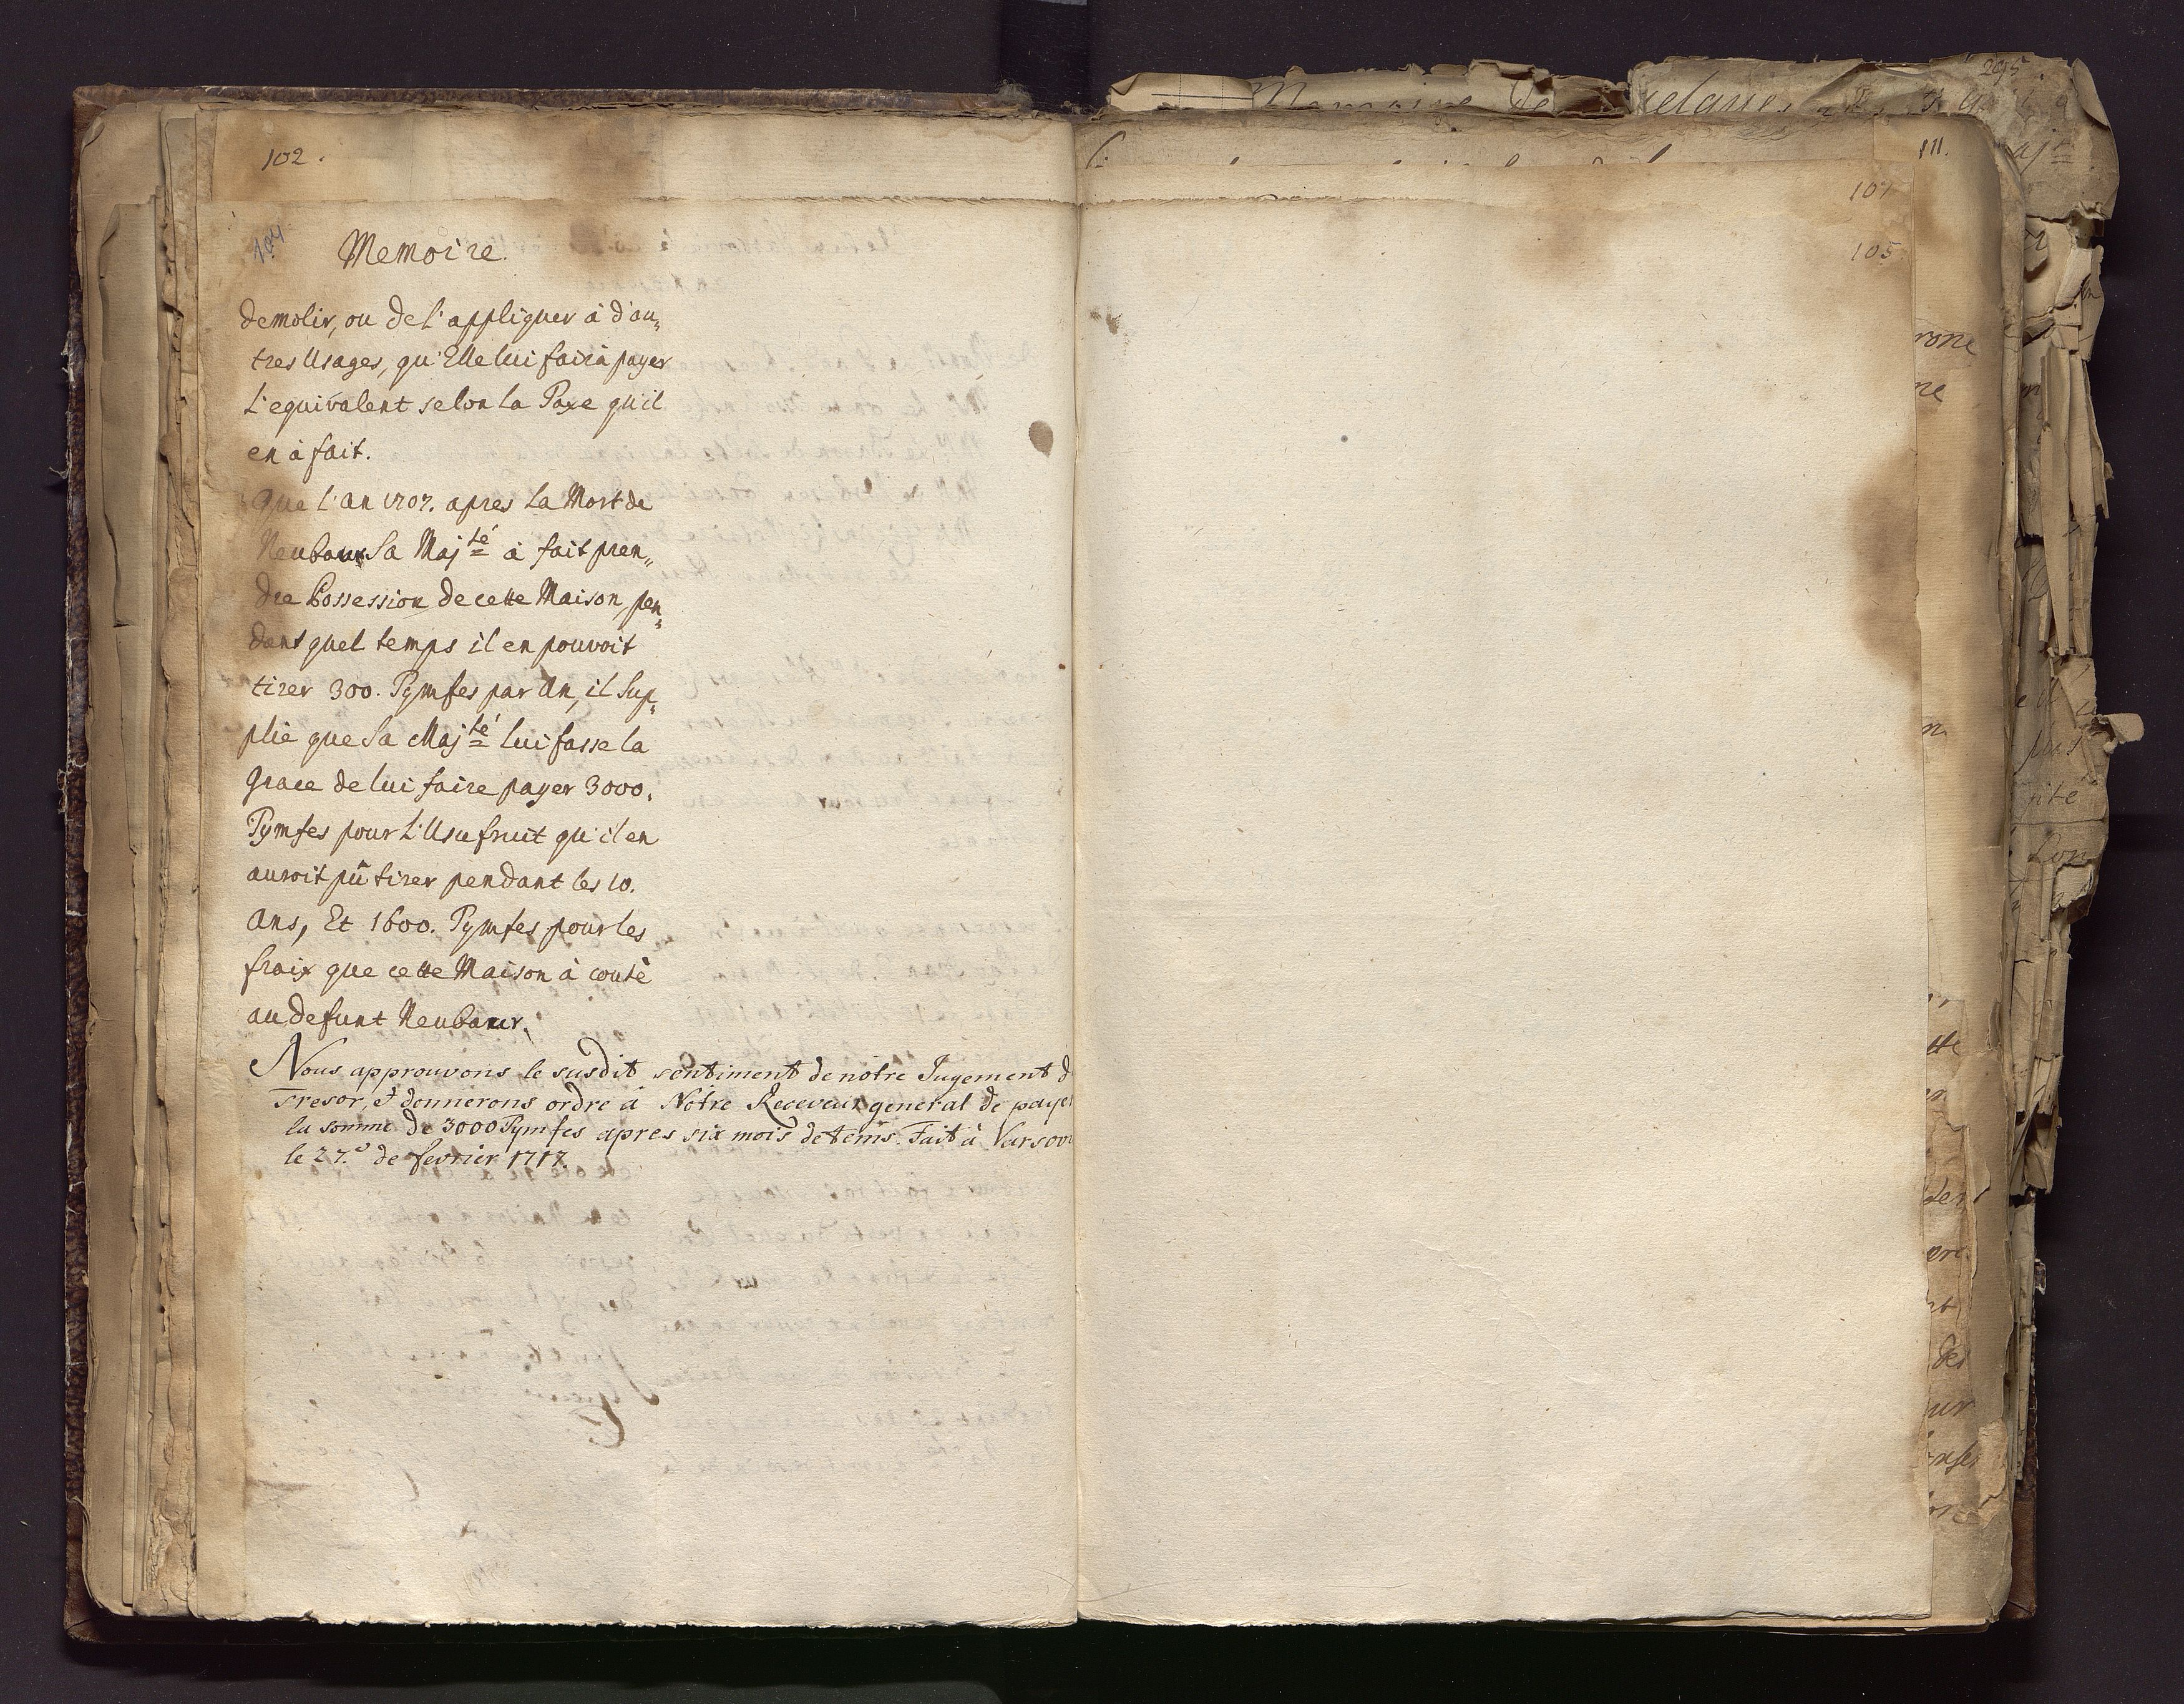 102.
104
Memoire.
demolir, ou de l'appliquer à d'au„
tres Usages, qu'Elle lui faira payer
L'equivalent selon la Taxe qu'il
en à fait.
Que l'an 1707. apres la Mort de
Neubaur Sa Maj.té à fait pren„
dre Possession de cette Maison, pen„
dant quel temps il en pouvoit
tirer 300. Tymfes par An, il Sup„
plie que Sa Maj.té lui fasse la
Grace de lui faire payer 3000.
Tymfes pour L'Usufruit qu'il en
auroit pû tirer pendant les 10.
Ans, Et 1600. Tymfes pour les
fraix que cette Maison à coutè
au defunt Neubaur.
Nous approuvons le susdit sentiment de nôtre Jugement d
Tresor, et donnerons ordre à Nôtre Receveur general de paye
la somme de 3000 Tymfes apres six mois de tems. Fait à Varsovi
le 27.e de fevrier 1717.
295
Memoire de
111.
107
105
rone
ne
n
tte
des
ur